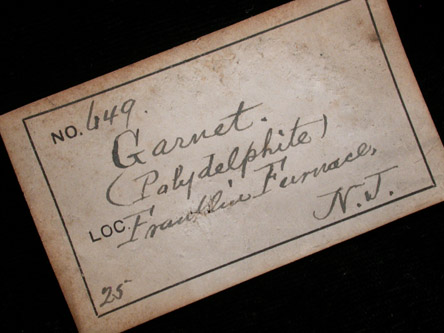 NO. 649.
Garnet.
(Polydelphite)
LOC. Franklin Furnace,
N.J.
25